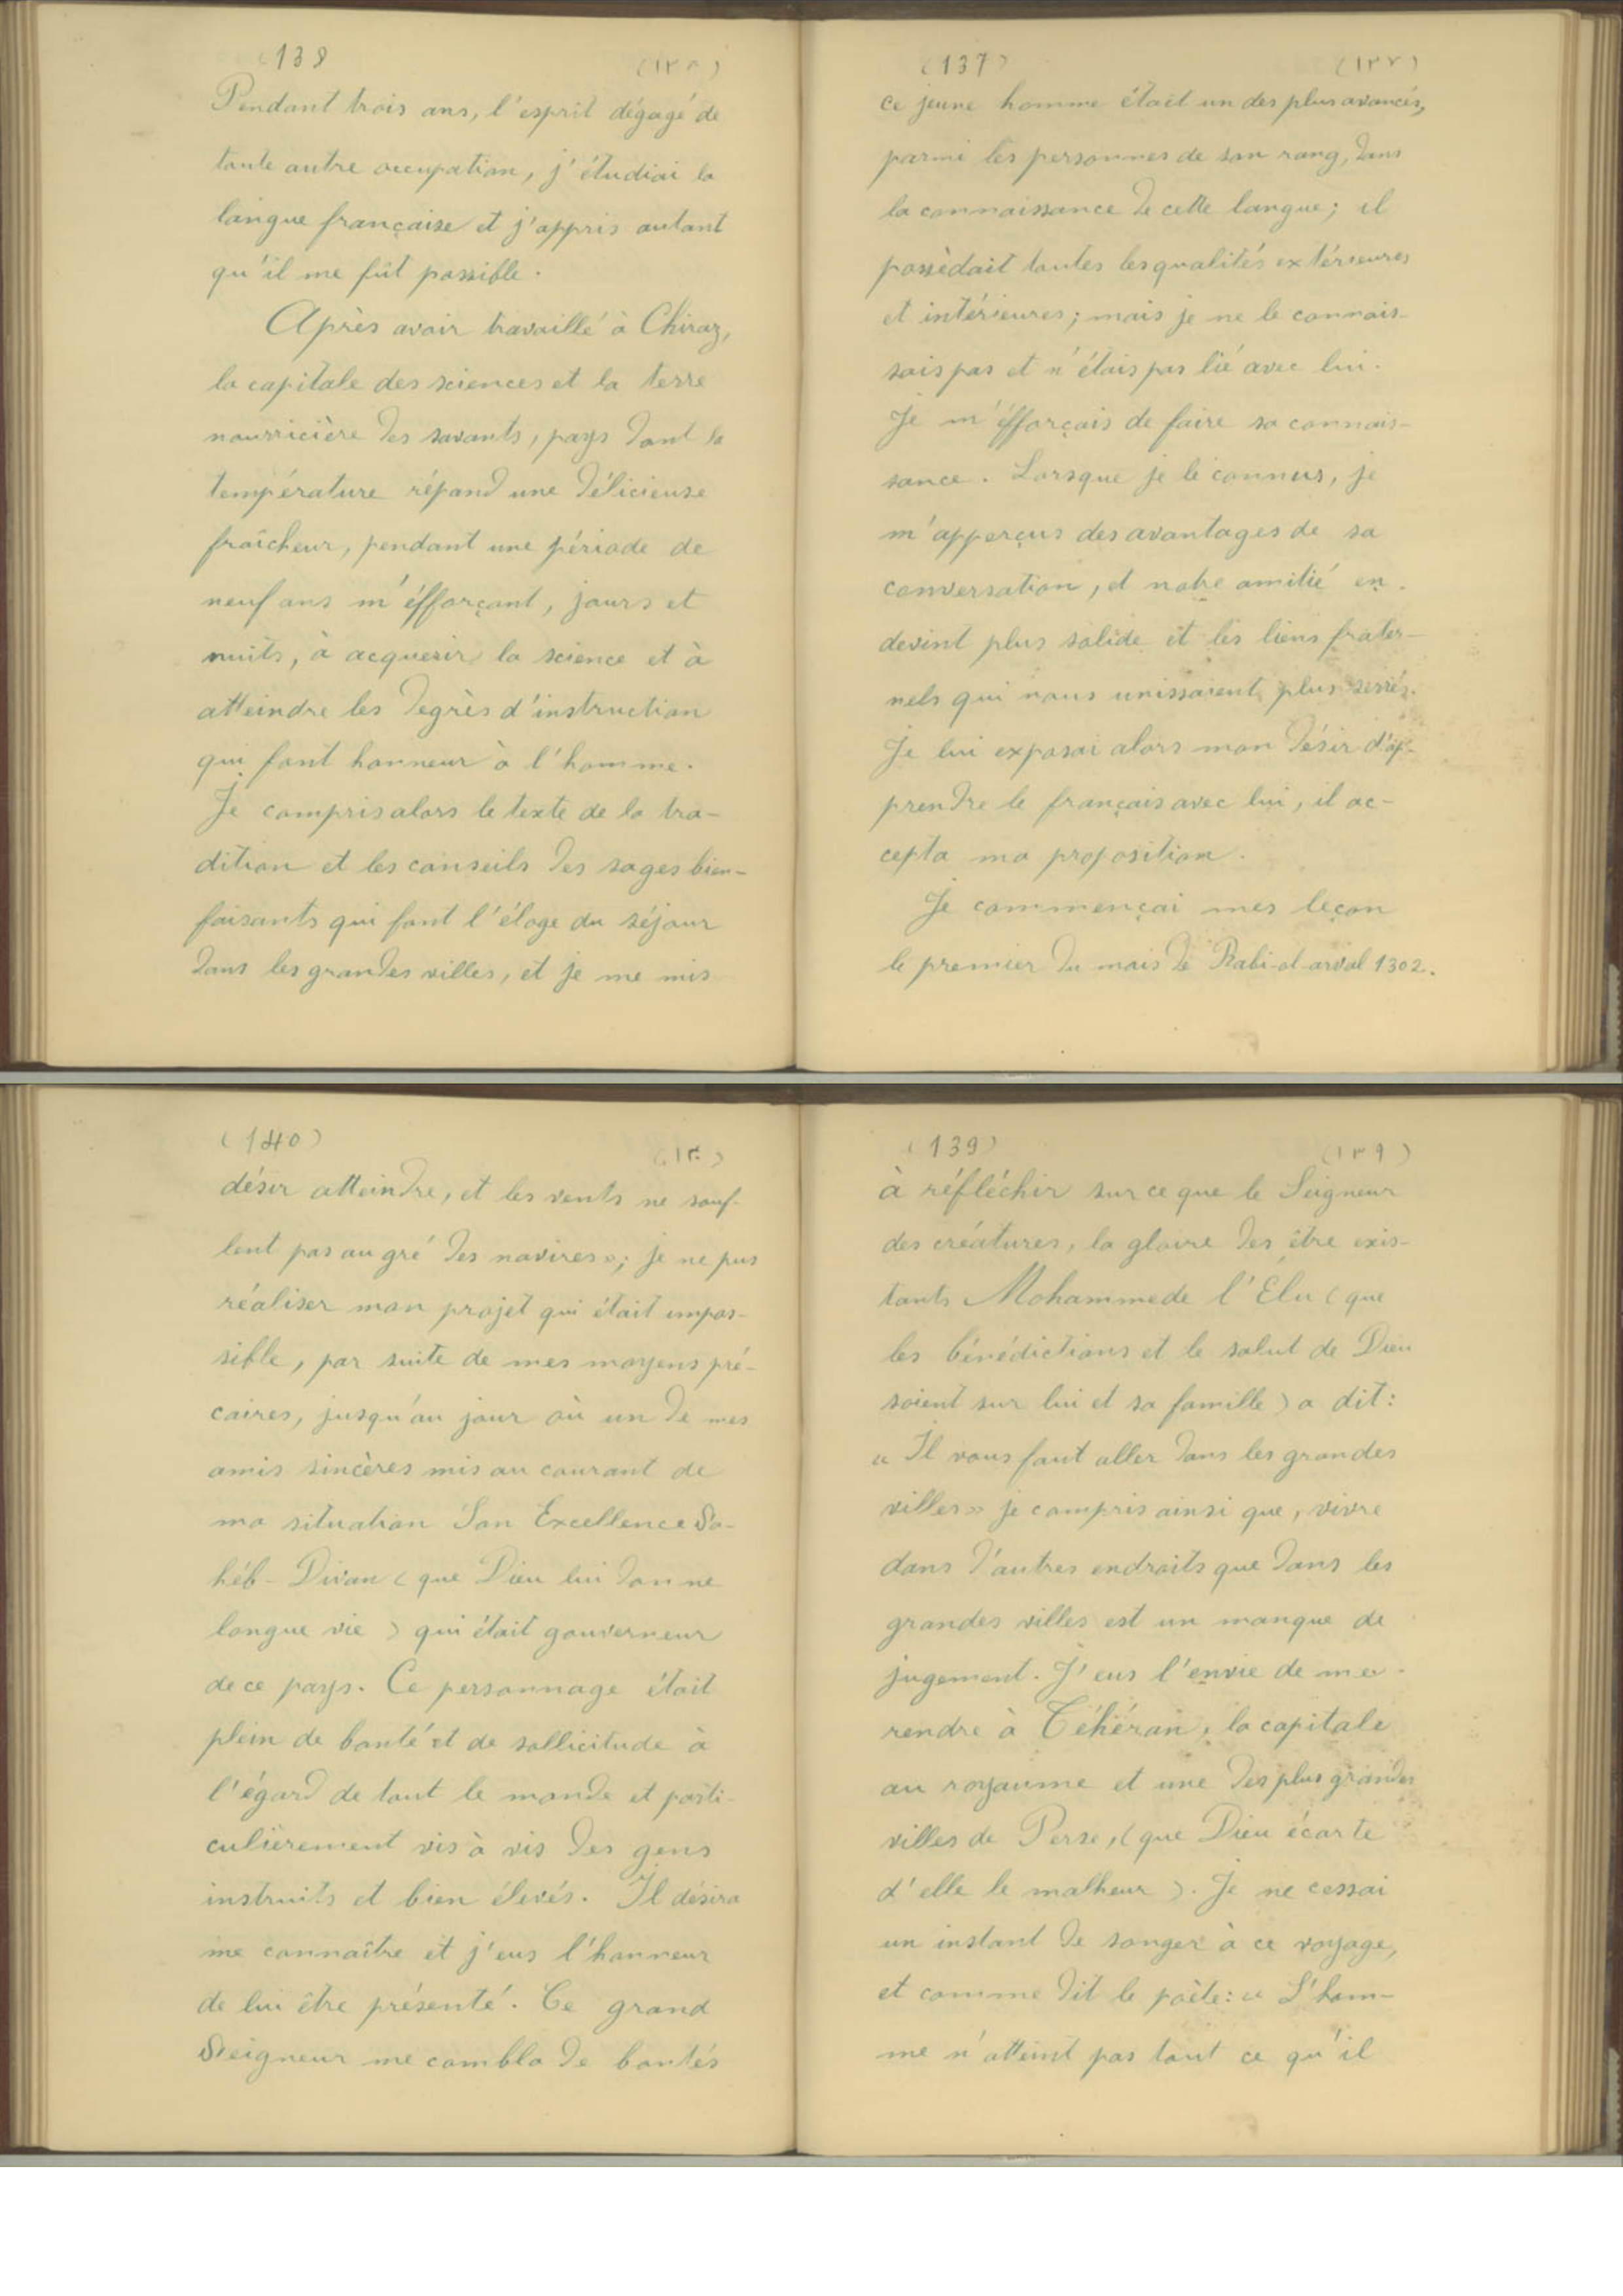 (137) (١٣٧)
ce jeune homme était un des plus avancés,
parmi les personnes de son rang, dans
la connaissance de cette langue; il
possèdait toutes les qualités extérieures
et intérieures; mais je ne le connais-
sais pas et n'étais pas lié avec lui.
Je m'éfforçais de faire sa connais-
sance. Lorsque je le connus, je
m'apperçus des avantages de sa
conversation, et notre amitié en
devint plus solide et les liens frater-
nels qui nous unissaient plus serrés.
Je lui exposai alors mon désir d'ap-
prendre le français avec lui, il ac-
cepta ma proposition.
Je commençai mes leçon
le premier du mois de Rabi-ol-avval 1302.
(138) (١٣٨)
Pendant trois ans, l'esprit dégagé de
toute autre occupation, j'étudiai la
langue française et j'appris autant
qu'il me fût possible.
Après avoir travaillé à Chiraz,
la capitale des sciences et la terre
nourricière des savants, pays dont la
température répand une délicieuse
fraîcheur, pendant une période de
neuf ans m'éfforçant, jours et
nuits, à acquerir la science et à
atteindre les degrès d'instruction
qui font honneur à l'homme.
Je compris alors le texte de la tra-
dition et les conseils des sages bien-
faisants qui font l'éloge du séjour
dans les grandes villes, et je me mis
(139) (١٣٩)
à réfléchir sur ce que le Seigneur
des créatures, la gloire des être exis-
tants Mohammede l'Élu (que
les bénédictions et le salut de Dieu
soient sur lui et sa famille) a dit:
« Il vous faut aller dans les grandes
villes» je compris ainsi que, vivre
dans d'autres endroits que dans les
grandes villes est un manque de
jugement. J'eus l'envie de me
rendre à Téhéran, la capitale
au royaume et une des plus grandes
villes de Perse, (que Dieu écarte
d'elle le malheur). Je ne cessai
un instant de songer à ce voyage,
et comme dit le poète: « L'hom-
me n'atteint pas tout ce qu'il
(140) (١٤٠)
désir atteindre, et les vents ne souf-
lent pas au gré des navires»; je ne pus
réaliser mon projet qui était impos-
sible, par suite de mes moyens pré-
caires, jusqu'au jour où un de mes
amis sincères mis au courant de
ma situation Son Excellence Sa-
héb-Divan (que Dieu lui donne
longue vie) qui était gouverneur
de ce pays. Ce personnage était
plein de bonté et de sollicitude à
l'égard de tout le monde et parti-
culièrement vis à vis des gens
instruits et bien élevés. Il désira
me connaître et j'eus l'honneur
de lui être présenté. Ce grand
Seigneur me combla de bontés